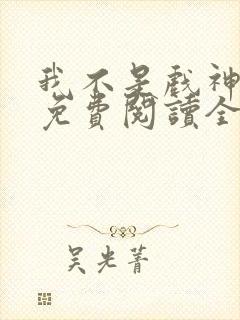 我不是戲神
免費閱讀全
吳光菁